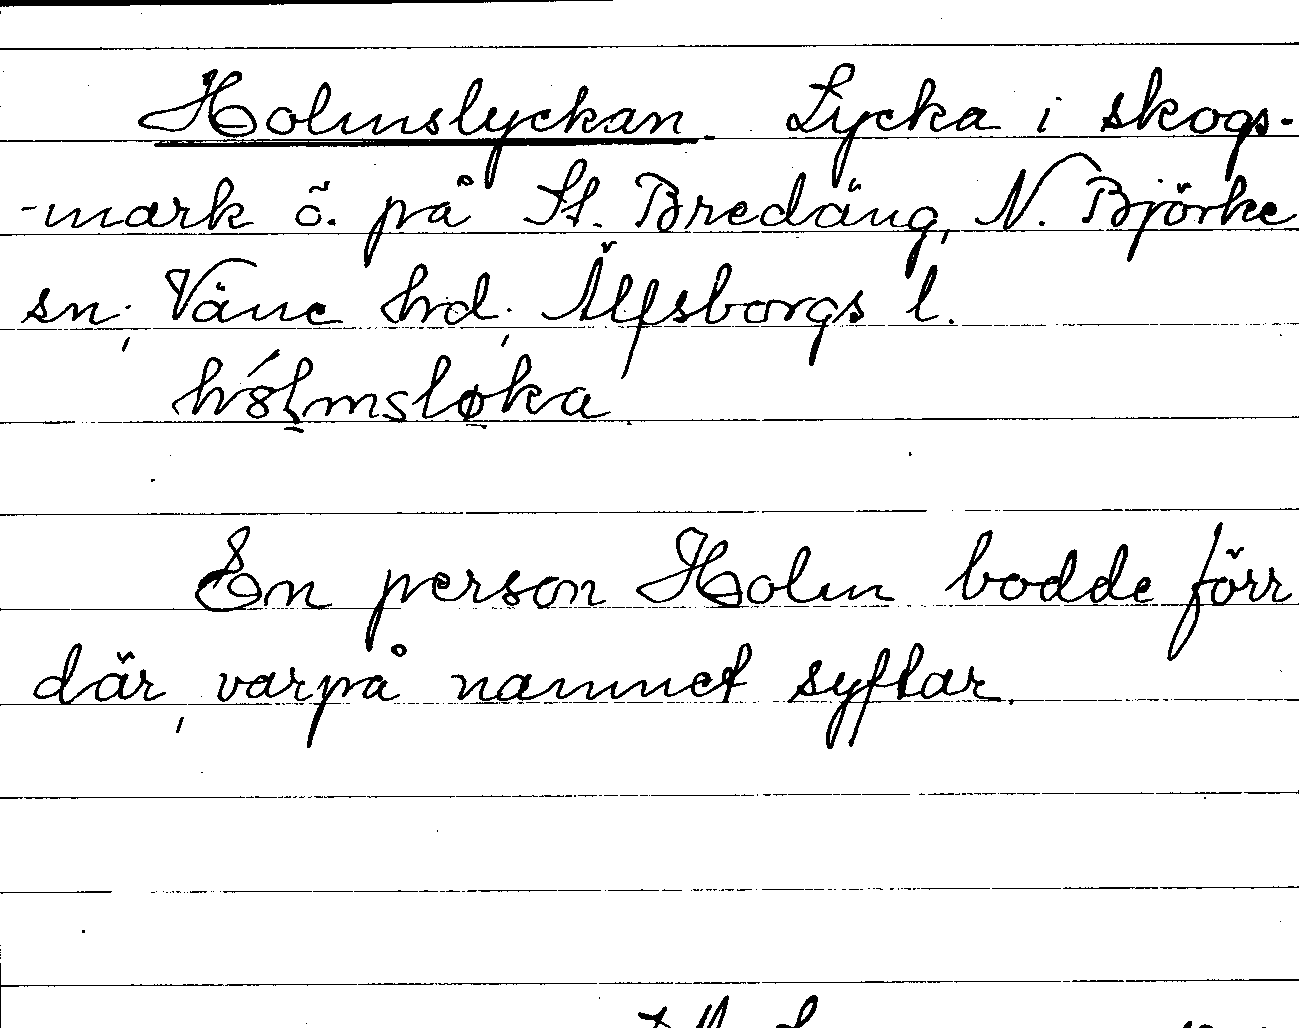 Holmslyckan. Lycka i skogs-
-mark ö. på St. Bredäng, N. Björke
sn; Väne hrd; Älfsborgs l.
hólmsløka
En person Holm bodde förr
där, varpå namnet syftar.